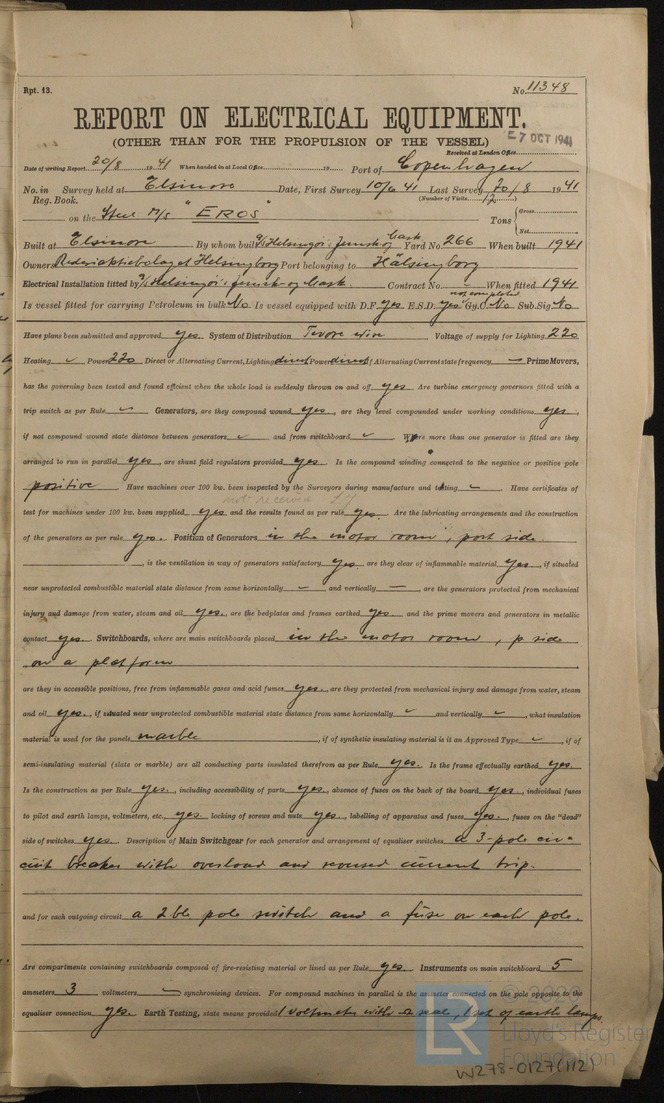 Rpt. 13. No. 11348
REPORT ON ELECTRICAL EQUIPMENT.
(OTHER THAN FOR THE PROPULSION OF THE VESSEL)
Received at London Office 7 OCT 1941
Date of writing Report 20/8 1941 When handed in at Local Office 19 Port of Copenhagen
No. in Reg. Book. Survey held at Elsinore Date, First Survey 10/6 41 Last Survey 20/8 1941
(Number of Visits 12)
on the Steel M/S "EROS" Tons { Gross Net
Built at Elsinore By whom built A/S Helsingörs Jernsk og Mask. Yard No. 266 When built 1941
Owners Rederiaktiebolaget Helsingborg Port belonging to Hälsingborg
Electrical Installation fitted by A/S Helsingörs Jernsk- og Mask. Contract No. - When fitted 1941
not completed
Is vessel fitted for carrying Petroleum in bulk No Is vessel equipped with D.F. yes E.S.D. yes Gy.C. No Sub.Sig. No
Have plans been submitted and approved yes System of Distribution Two wire Voltage of supply for Lighting 220
Heating ✓ Power 220 Direct or Alternating Current, Lighting direct Power direct If Alternating Current state frequency — Prime Movers,
has the governing been tested and found efficient when the whole load is suddenly thrown on and off yes Are turbine emergency governors fitted with a
trip switch as per Rule ✓ Generators, are they compound wound yes, are they level compounded under working conditions yes,
if not compound wound state distance between generators ✓ and from switchboard ✓ Where more than one generator is fitted are they
arranged to run in parallel yes, are shunt field regulators provided yes. Is the compound winding connected to the negative or positive pole
positive Have machines over 100 kw. been inspected by the Surveyors during manufacture and testing ✓ Have certificates of
not received
test for machines under 100 kw. been supplied yes and the results found as per rule yes. Are the lubricating arrangements and the construction
of the generators as per rule yes. Position of Generators in the motor room, port side.
is the ventilation in way of generators satisfactory yes are they clear of inflammable material yes, if situated
near unprotected combustible material state distance from same horizontally — and vertically — are the generators protected from mechanical
injury and damage from water, steam and oil yes, are the bedplates and frames earthed yes and the prime movers and generators in metallic
contact yes. Switchboards, where are main switchboards placed in the motor room, p side
on a platform
are they in accessible positions, free from inflammable gases and acid fumes yes., are they protected from mechanical injury and damage from water, steam
and oil yes., if situated near unprotected combustible material state distance from same horizontally ✓ and vertically ✓, what insulation
material is used for the panels marble, if of synthetic insulating material is it an Approved Type ✓, if of
semi-insulating material (slate or marble) are all conducting parts insulated therefrom as per Rule yes. Is the frame effectually earthed yes
Is the construction as per Rule yes., including accessibility of parts yes., absence of fuses on the back of the board yes, individual fuses
to pilot and earth lamps, voltmeters, etc., yes locking of screws and nuts yes., labelling of apparatus and fuses yes., fuses on the "dead"
side of switches yes. Description of Main Switchgear for each generator and arrangement of equaliser switches a 3-pole cir-
cuit breaker with overload and reversed current trip.
and for each outgoing circuit a 2ble pole switch and a fuse on each pole.
Are compartments containing switchboards composed of fire-resisting material or lined as per Rule yes. Instruments on main switchboard 5
ammeters 3 voltmeters — synchronising devices. For compound machines in parallel is the ammeter connected on the pole opposite to the
equaliser connection yes. Earth Testing, state means provided 1 voltmeter with scale, 1 set of earth lamps
LR
Lloyd's Register
Foundation
W278-0127(1/2)